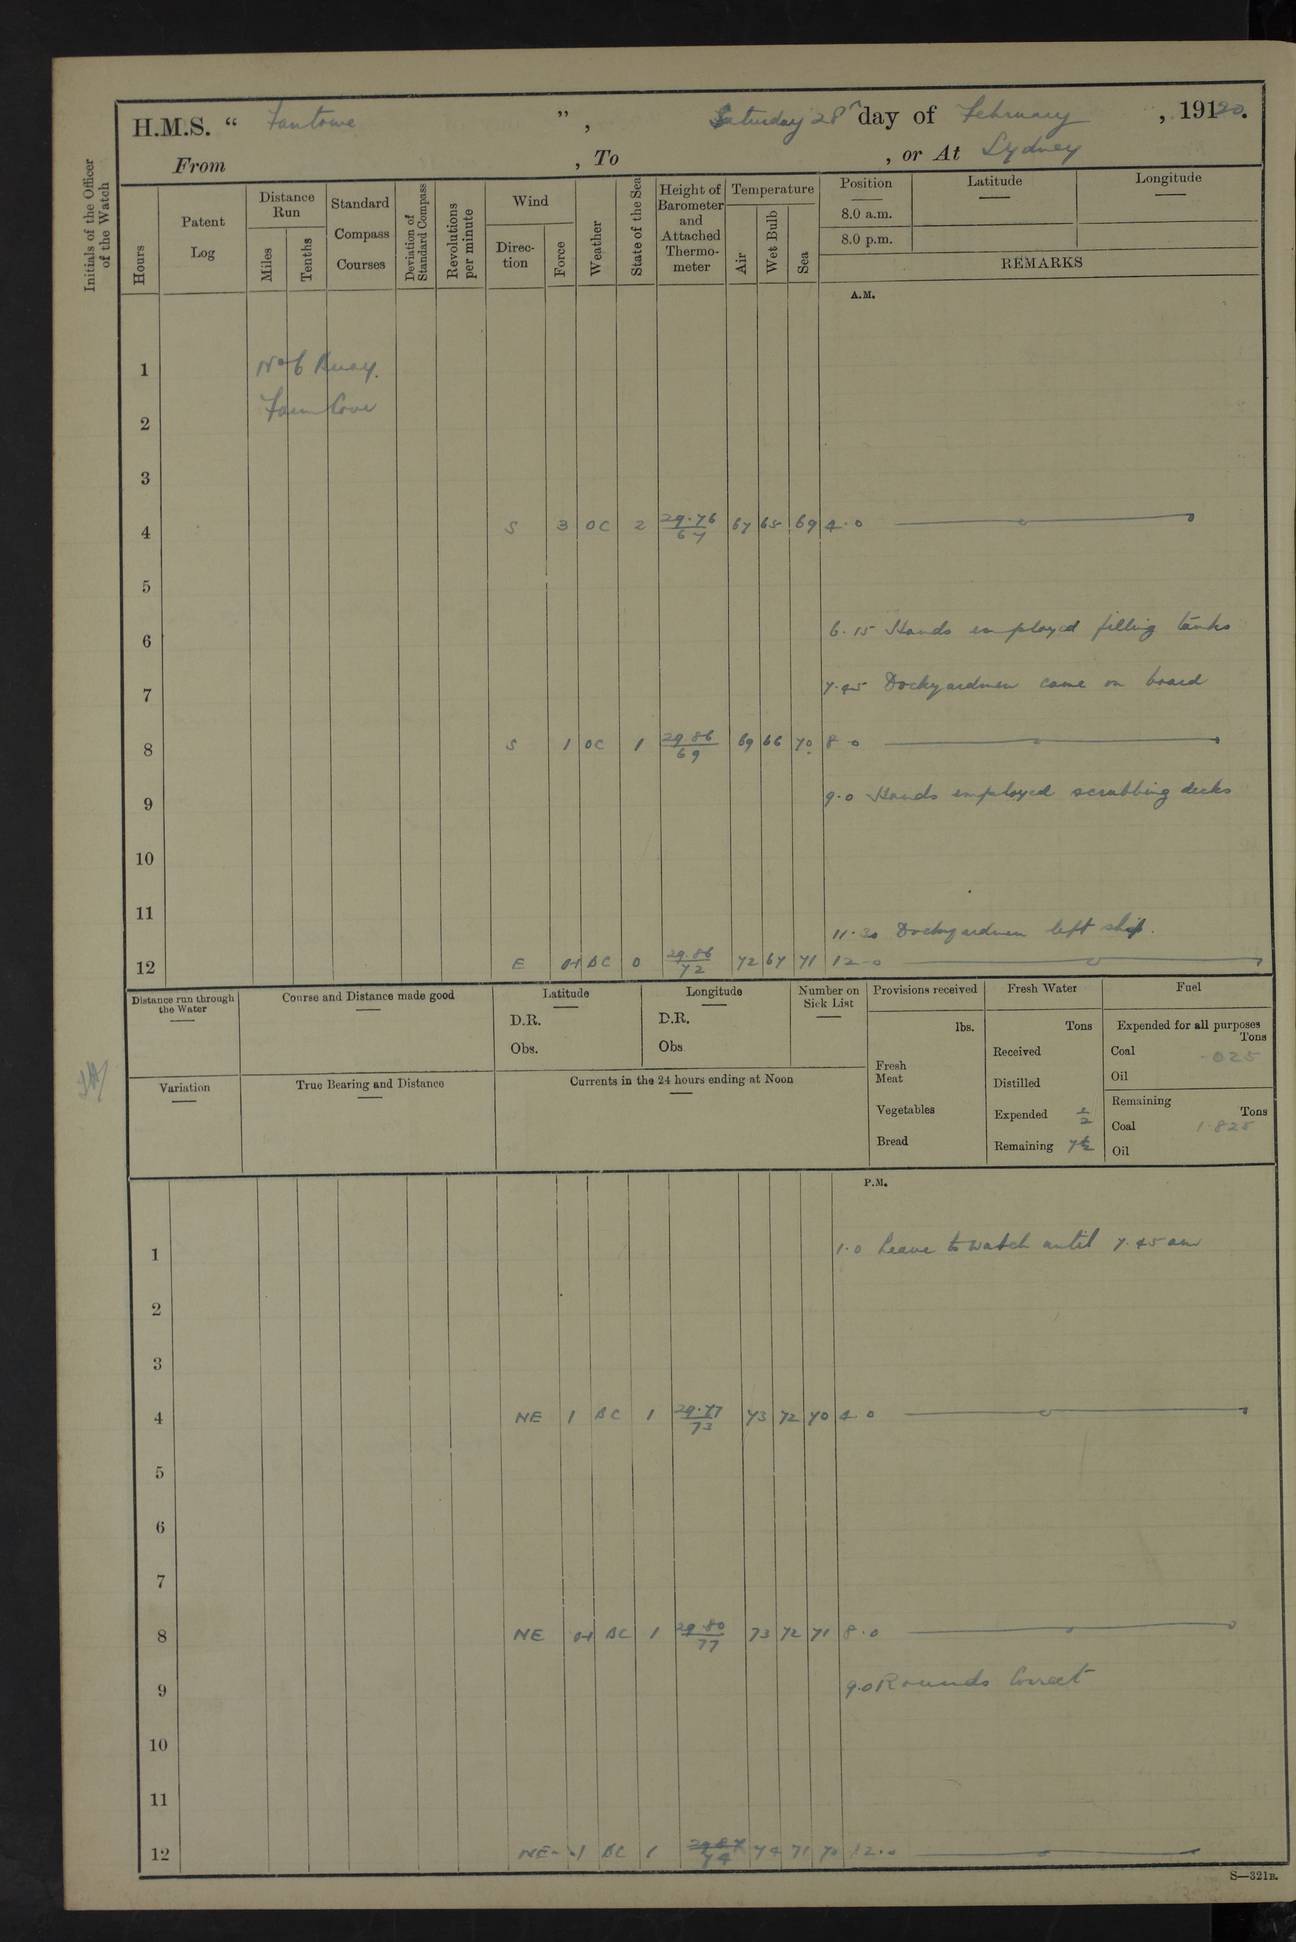 H.M.S. “ Fantome ”, Saturday 28th day of February, 19120.
From , To , or At Sydney
Initials of the Officer of the Watch
Hours
Patent Log
Distance Run
Miles
Tenths
Standard Compass Courses
Deviation of Standard Compass
Revolutions per minute
Wind
Direction
Force
Weather
State of the Sea
Height of Barometer and Attached Thermometer
Temperature
Air
Wet Bulb
Sea
Position
8.0 a.m.
8.0 p.m.
Latitude
Longitude
REMARKS
A.M.
1 No 6 Buoy.
2 Farm Cove
3
4 S 3 OC 2 29.76/67 67 65 69 4.0
5
6 6.15 Hands employed filling tanks
7 7.45 Dockyardmen came on board
8 S 1 OC 1 29.86/69 69 66 70 8.0
9 9.0 Hands employed scrubbing decks
10
11 11.30 Dockyardmen left ship.
12 E 0-1 BC 0 29.86/72 72 67 71 12.0
Distance run through the Water
Course and Distance made good
Latitude
D.R.
Obs.
Longitude
D.R.
Obs
Number on Sick List
Provisions received
lbs.
Fresh Meat
Vegetables
Bread
Fresh Water
Tons
Received
Distilled
Expended ½
Remaining 7½
Fuel
Expended for all purposes
Tons
Coal .025
Oil
Remaining
Tons
Coal 1.825
Oil
Variation
True Bearing and Distance
Currents in the 24 hours ending at Noon
P.M.
1 1.0 Leave to watch until 7.45 am
2
3
4 NE 1 BC 1 29.77/73 73 72 70 4.0
5
6
7
8 NE 0-1 BC 1 29.80/77 73 72 71 8.0
9 9.0 Rounds Correct
10
11
12 NE 1 BC 1 74 74 71 70 12.0
S—321B.